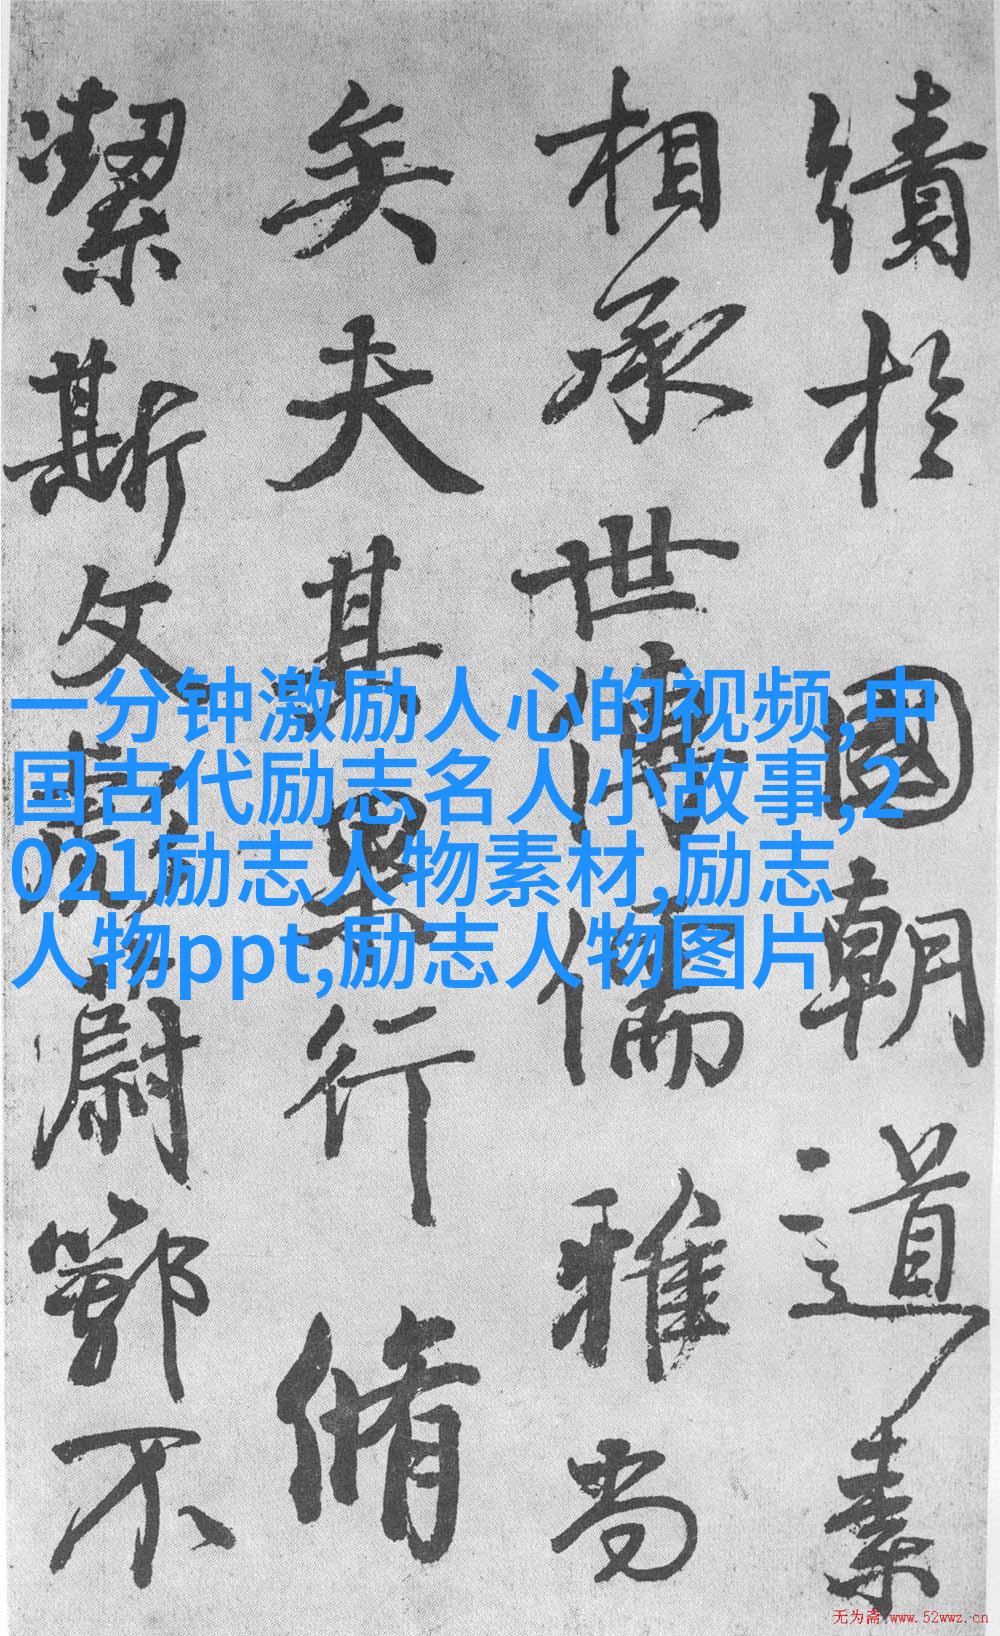 績於國朝道素
相承世傳儒雅尚
矣夫其果行脩
潔斯文彪蔚鄂不
一分钟激励人心的视频,中
国古代励志名人小故事,2
021励志人物素材,励志
人物ppt,励志人物图片
无为斋 www.52wwz.cn